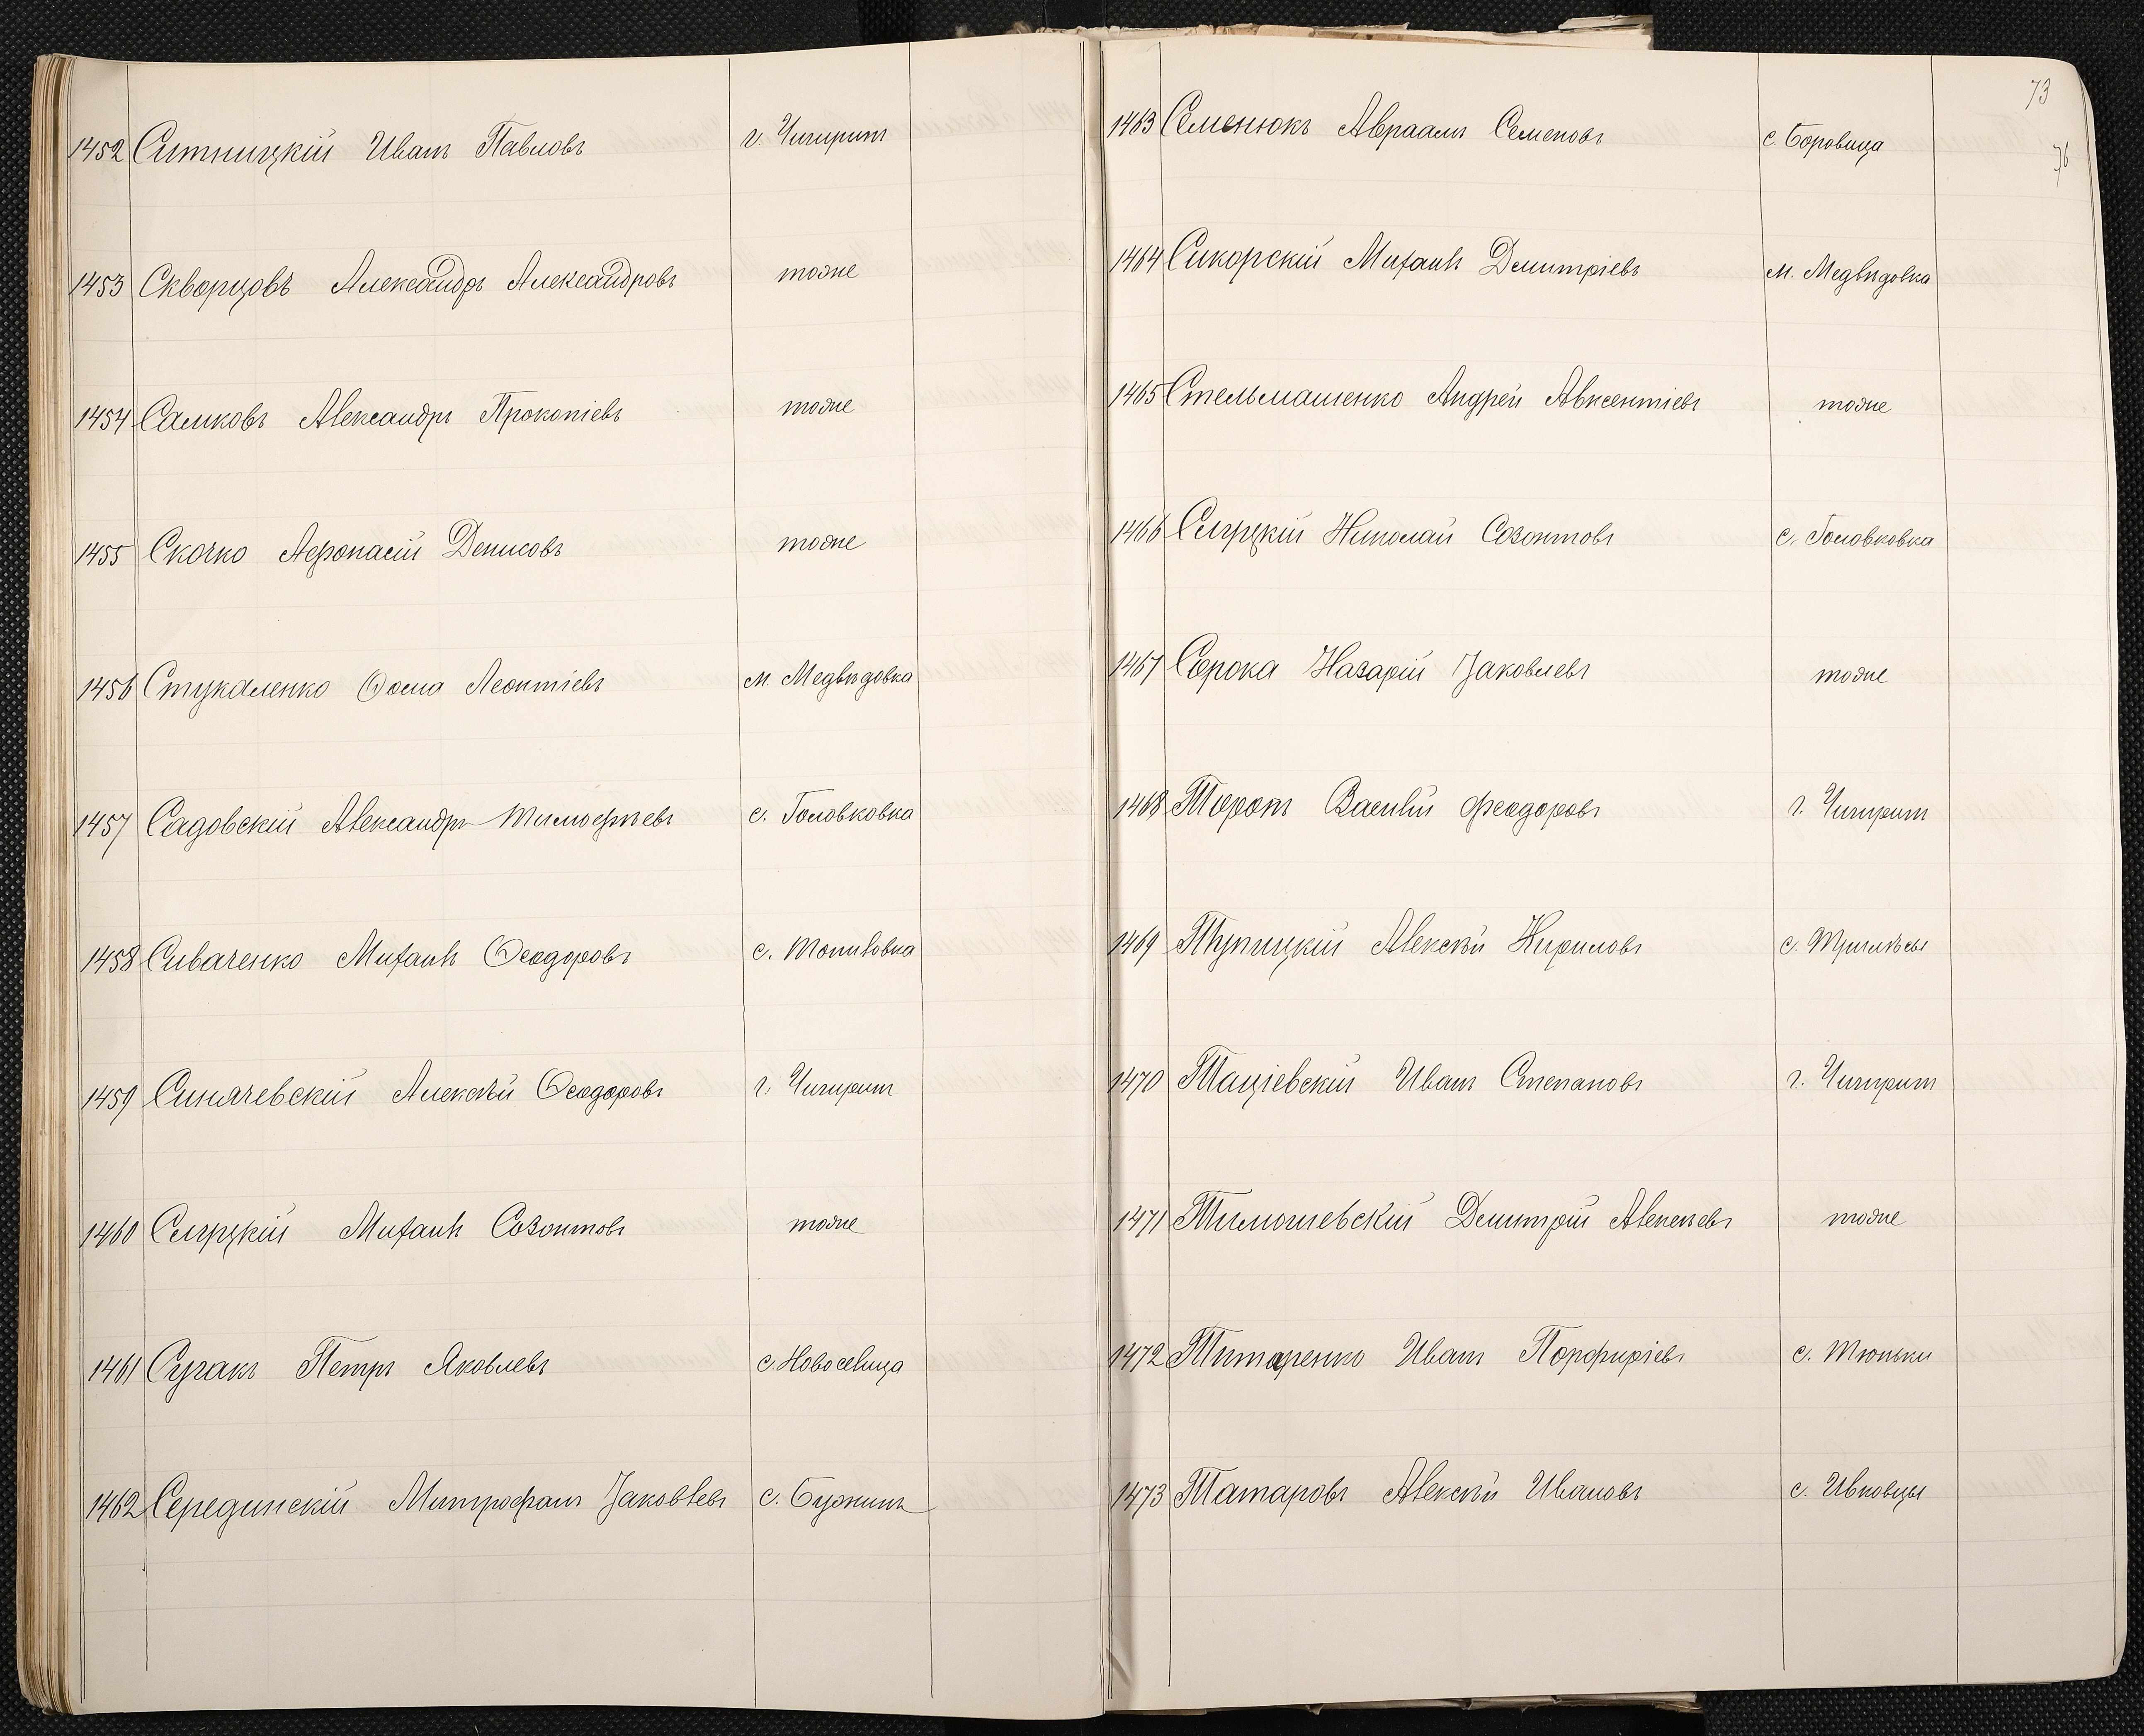 1452 Ситницкій Иванъ Павловъ г. Чигиринъ
1453 Скворцовъ Александръ Александровъ тоже
1454 Самковъ Александръ Прокопіевъ тоже
1455 Скочко Афонасій Денисовъ тоже
1456 Стукаленко Ѳома Леонтіевъ м. Медвѣдовка
1457 Садовскій Александръ Тимофѣевъ с. Головковка
1458 Сиваченко Михаилъ Ѳеодоровъ с. Топиловка
1459 Синячевскій Алексѣй Ѳеодоровъ г. Чигиринъ
1460 Михаилъ Созонтовъ тоже
1461 Сугакъ Петръ Яковлевъ с. Новоселица
1462 Серединскій Митрофанъ Іаковлевъ с. Бужинъ
73
76
1463 Семенюкъ Авраамъ Семеновъ с. Боровица
1464 Сикорскій Михаилъ Димитріевъ м. Медвѣдовка
1465 Стельмашенко Андрей Авксентіевъ тоже
1466 Николай Созонтовъ с. Головковка
1467 Сорока Назарій Іаковлевъ тоже
1468 Василій Феодоровъ г. Чигиринъ
1469 Тупицкій Алексѣй Кириловъ с. Трилѣсы
1470 Таціевскій Иванъ Степановъ г. Чигиринъ
1471 Тимошевскій Димитрій Алексѣевъ тоже
1472 Титаренко Иванъ Порфиріевъ с. Тюньки
1473 Татаровъ Алексѣй Ивановъ с. Ивковцы